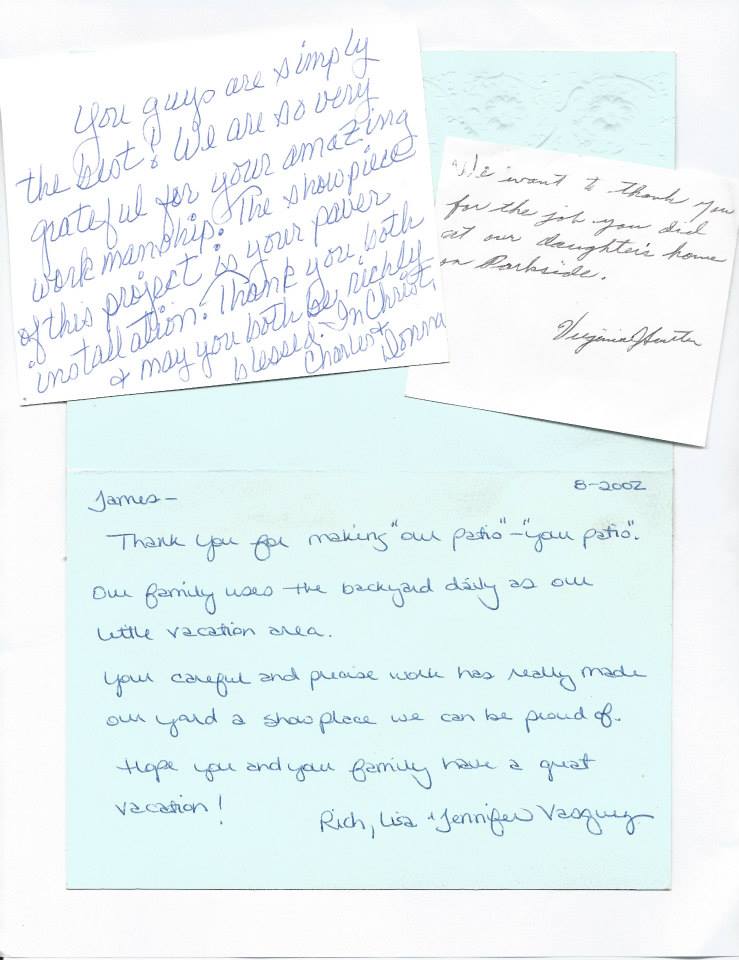 You guys are simply
the best! We are so very
grateful for your amazing
workmanship. The showpiece
of this project is your paver
installation. Thank you both
& may you both be richly
blessed. In Christ,
Charles & Donna
We want to thank you
for the job you did
at our daughter's home
on Parkside.
Virginia
8-2002
James-
Thank you for making "our patio"-"your patio".
Our family uses the backyard daily as our
little vacation area.
Your careful and precise work has really made
our yard a showplace we can be proud of.
Hope you and your family have a great
vacation!
Rich, Lisa & Jennifer Vasquez